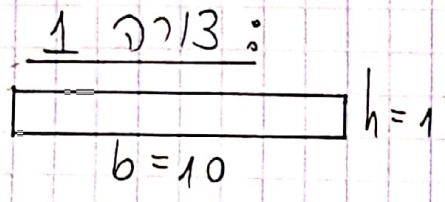 צורה 1 :
h = 1
b = 10